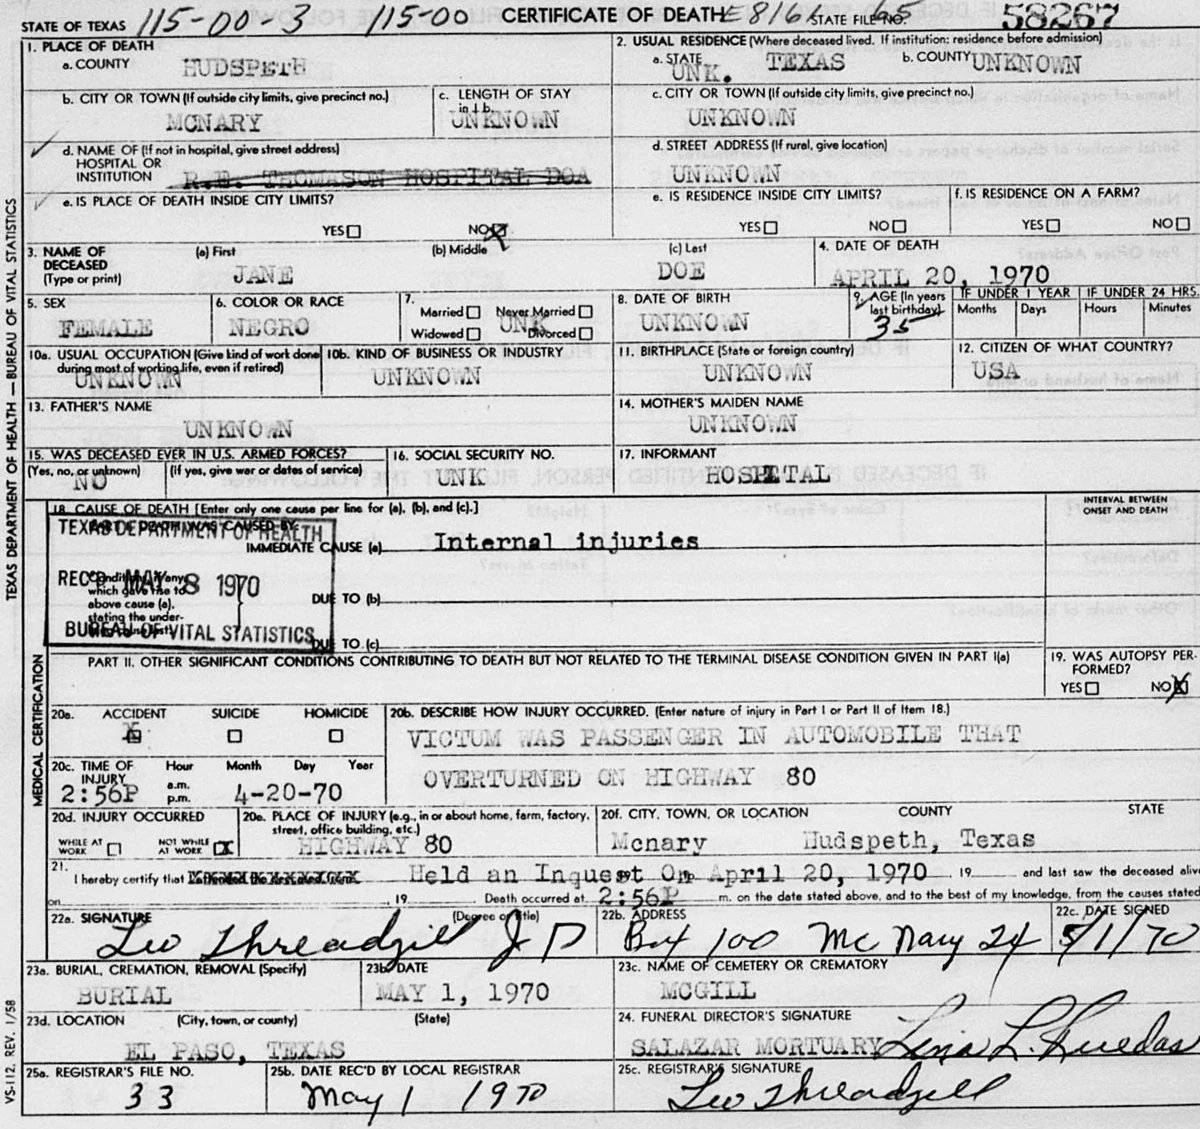 STATE OF TEXAS 115-00-3 115-00 CERTIFICATE OF DEATH E8161 STATE FILE NO. 58267
1. PLACE OF DEATH
a. COUNTY HUDSPETH
2. USUAL RESIDENCE (Where deceased lived. If institution: residence before admission)
a. STATE UNK. TEXAS b. COUNTY UNKNOWN
b. CITY OR TOWN (If outside city limits, give precinct no.)
MCNARY
c. LENGTH OF STAY in 1 b.
UNKNOWN
c. CITY OR TOWN (If outside city limits, give precinct no.)
UNKNOWN
d. NAME OF (If not in hospital, give street address)
HOSPITAL OR
INSTITUTION R.E. THOMASON HOSPITAL DOA
d. STREET ADDRESS (If rural, give location)
UNKNOWN
e. IS PLACE OF DEATH INSIDE CITY LIMITS?
YES NO X
e. IS RESIDENCE INSIDE CITY LIMITS?
YES NO
f. IS RESIDENCE ON A FARM?
YES NO
3. NAME OF DECEASED (Type or print)
(a) First JANE
(b) Middle
(c) Last DOE
4. DATE OF DEATH
APRIL 20, 1970
5. SEX
FEMALE
6. COLOR OR RACE
NEGRO
7. Married Never Married
UNK
Widowed Divorced
8. DATE OF BIRTH
UNKNOWN
9. AGE (In years last birthday)
35
IF UNDER 1 YEAR
Months Days
IF UNDER 24 HRS.
Hours Minutes
10a. USUAL OCCUPATION (Give kind of work done during most of working life, even if retired)
UNKNOWN
10b. KIND OF BUSINESS OR INDUSTRY
UNKNOWN
11. BIRTHPLACE (State or foreign country)
UNKNOWN
12. CITIZEN OF WHAT COUNTRY?
USA
13. FATHER'S NAME
UNKNOWN
14. MOTHER'S MAIDEN NAME
UNKNOWN
15. WAS DECEASED EVER IN U.S. ARMED FORCES?
(Yes, no, or unknown) (If yes, give war or dates of service)
NO
16. SOCIAL SECURITY NO.
UNK
17. INFORMANT
HOSPITAL
18. CAUSE OF DEATH [Enter only one cause per line for (a), (b), and (c).]
INTERVAL BETWEEN ONSET AND DEATH
PART I. DEATH WAS CAUSED BY:
IMMEDIATE CAUSE (a) Internal injuries
TEXAS DEPARTMENT OF HEALTH
REC'D MAY 8 1970
BUREAU OF VITAL STATISTICS
Conditions, if any,
which gave rise to
above cause (a),
stating the under-
lying cause last.
DUE TO (b)
DUE TO (c)
PART II. OTHER SIGNIFICANT CONDITIONS CONTRIBUTING TO DEATH BUT NOT RELATED TO THE TERMINAL DISEASE CONDITION GIVEN IN PART I(a)
19. WAS AUTOPSY PERFORMED?
YES NO X
20a. ACCIDENT SUICIDE HOMICIDE
X
20b. DESCRIBE HOW INJURY OCCURRED. (Enter nature of injury in Part I or Part II of Item 18.)
VICTUM WAS PASSENGER IN AUTOMOBILE THAT
OVERTURNED ON HIGHWAY 80
20c. TIME OF INJURY Hour Month Day Year
2:56P a.m. p.m. 4-20-70
20d. INJURY OCCURRED
WHILE AT WORK NOT WHILE AT WORK X
20e. PLACE OF INJURY (e.g., in or about home, farm, factory, street, office building, etc.)
HIGHWAY 80
20f. CITY, TOWN, OR LOCATION COUNTY STATE
Mcnary Hudspeth, Texas
21.
I hereby certify that I attended the deceased from Held an Inquest On April 20, 1970 19 and last saw the deceased alive
on 19 Death occurred at 2:56P m. on the date stated above, and to the best of my knowledge, from the causes stated
22a. SIGNATURE (Degree or title)
Leo Threadgill J P
22b. ADDRESS
Box 100 Mc Nary 24
22c. DATE SIGNED
5/1/70
23a. BURIAL, CREMATION, REMOVAL (Specify)
BURIAL
23b. DATE
MAY 1, 1970
23c. NAME OF CEMETERY OR CREMATORY
MCGILL
23d. LOCATION (City, town, or county) (State)
EL PASO, TEXAS
24. FUNERAL DIRECTOR'S SIGNATURE
SALAZAR MORTUARY Lina L. Luedas
25a. REGISTRAR'S FILE NO.
33
25b. DATE REC'D BY LOCAL REGISTRAR
May 1 1970
25c. REGISTRAR'S SIGNATURE
Leo Threadgill
TEXAS DEPARTMENT OF HEALTH — BUREAU OF VITAL STATISTICS
MEDICAL CERTIFICATION
VS-112, REV. 1/58